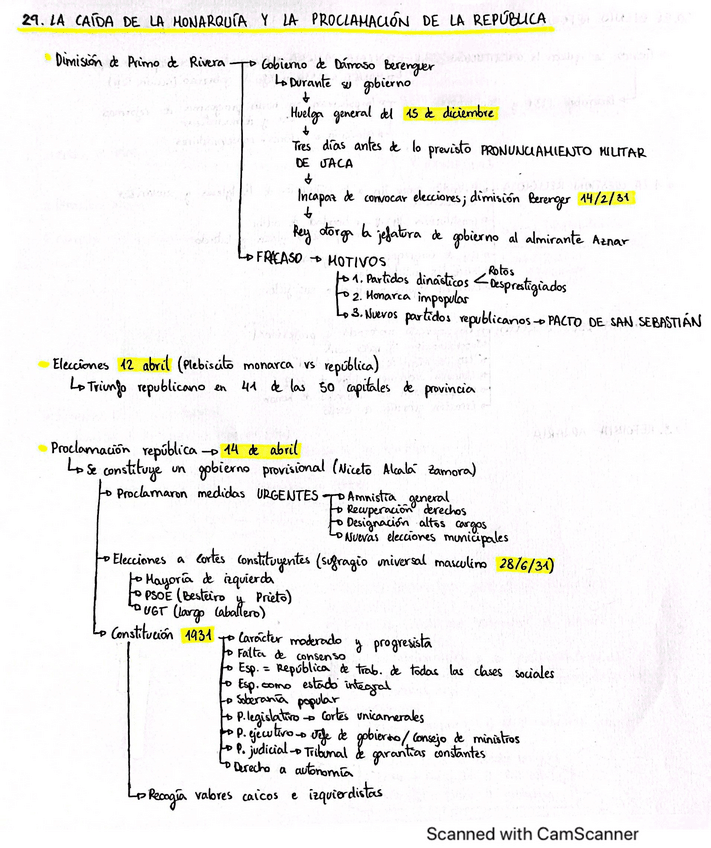 29. LA CAÍDA DE LA MONARQUÍA Y LA PROCLAMACIÓN DE LA REPÚBLICA
Dimisión de Primo de Rivera → Gobierno de Dámaso Berenguer
↳ Durante su gobierno
↓
Huelga general del 15 de diciembre
↓
Tres días antes de lo previsto PRONUNCIAMIENTO MILITAR
DE JACA
↓
Incapaz de convocar elecciones; dimisión Berenger 14/2/31
↓
Rey otorga la jefatura de gobierno al almirante Aznar
↳ FRACASO → MOTIVOS
→ 1. Partidos dinásticos < Rotos
Desprestigiados
→ 2. Monarca impopular
↳ 3. Nuevos partidos republicanos → PACTO DE SAN SEBASTIÁN
Elecciones 12 abril (Plebiscito monarca vs república)
↳ Triunfo republicano en 41 de las 50 capitales de provincia
Proclamación república → 14 de abril
↳ Se constituye un gobierno provisional (Niceto Alcalá Zamora)
→ Proclamaron medidas URGENTES → Amnistía general
→ Recuperación derechos
→ Designación altos cargos
↳ Nuevas elecciones municipales
→ Elecciones a cortes constituyentes (sufragio universal masculino 28/6/31)
→ Mayoría de izquierda
→ PSOE (Besteiro y Prieto)
↳ UGT (largo Caballero)
↳ Constitución 1931 → Carácter moderado y progresista
→ Falta de consenso
→ Esp. = República de trab. de todas las clases sociales
→ Esp. como estado integral
→ Soberanía popular
→ P. legislativo → Cortes unicamerales
→ P. ejecutivo → Jefe de gobierno/Consejo de ministros
→ P. judicial → Tribunal de garantías constantes
↳ Derecho a autonomía
↳ Recogía valores caicos e izquierdistas
Scanned with CamScanner